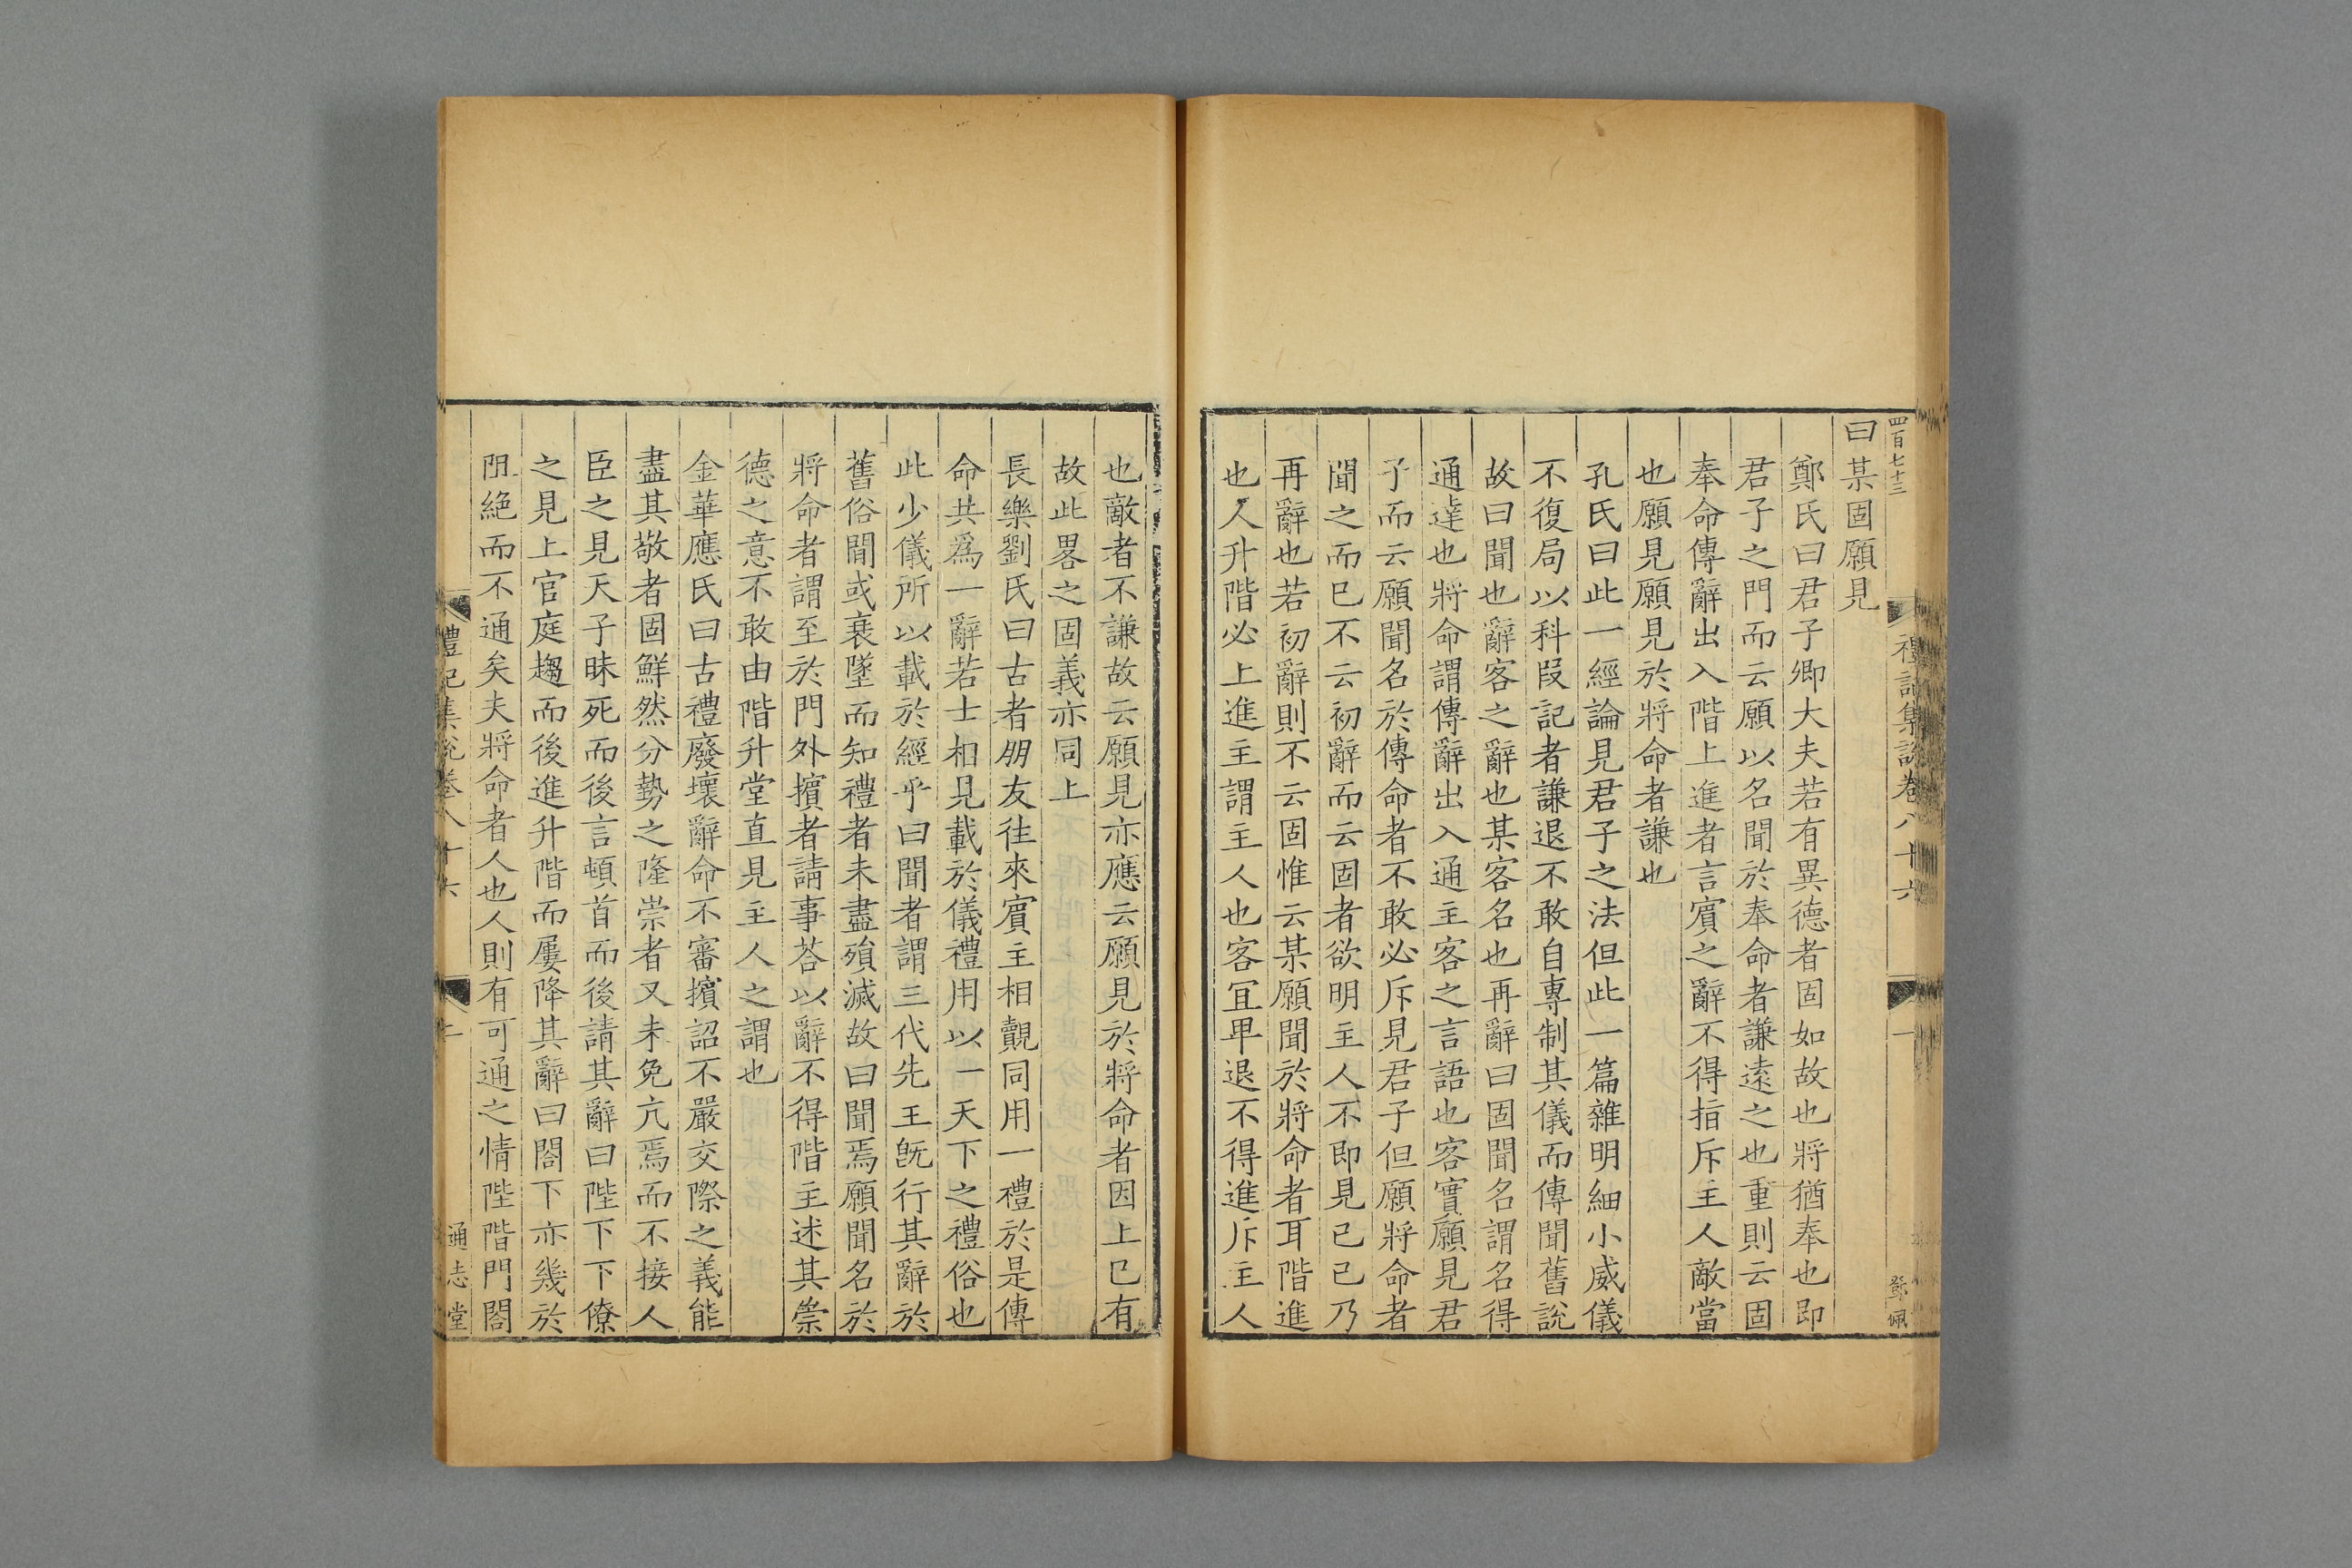 四百七十三
禮記集說卷八十六
一
鄧佩
曰某固願見
鄭氏曰君子卿大夫若有異德者固如故也將猶奉也即
君子之門而云願以名聞於奉命者謙遠之也重則云固
奉命傳辭出入階上進者言賓之辭不得指斥主人敵當
也願見願見於將命者謙也
孔氏曰此一經論見君子之法但此一篇雜明細小威儀
不復局以科段記者謙退不敢自專制其儀而傳聞舊說
故曰聞也辭客之辭也某客名也再辭曰固聞名謂名得
通達也將命謂傳辭出入通主客之言語也客實願見君
子而云願聞名於傳命者不敢必斥見君子但願將命者
聞之而已不云初辭而云固者欲明主人不即見己己乃
再辭也若初辭則不云固惟云某願聞於將命者耳階進
也人升階必上進主謂主人也客宜卑退不得進斥主人
也敵者不謙故云願見亦應云願見於將命者因上已有
故此畧之固義亦同上
長樂劉氏曰古者朋友往來賓主相覿同用一禮於是傳
命共爲一辭若士相見載於儀禮用以一天下之禮俗也
此少儀所以載於經乎曰聞者謂三代先王旣行其辭於
舊俗間或衰墜而知禮者未盡殞滅故曰聞焉願聞名於
將命者謂至於門外擯者請事荅以辭不得階主述其崇
德之意不敢由階升堂直見主人之謂也
金華應氏曰古禮廢壞辭命不審擯詔不嚴交際之義能
盡其敬者固鮮然分勢之隆崇者又未免亢焉而不接人
臣之見天子昧死而後言頓首而後請其辭曰陛下下僚
之見上官庭趨而後進升階而屢降其辭曰閤下亦幾於
阻絶而不通矣夫將命者人也人則有可通之情陛階門閤
禮記集說卷八十六
二
通志堂